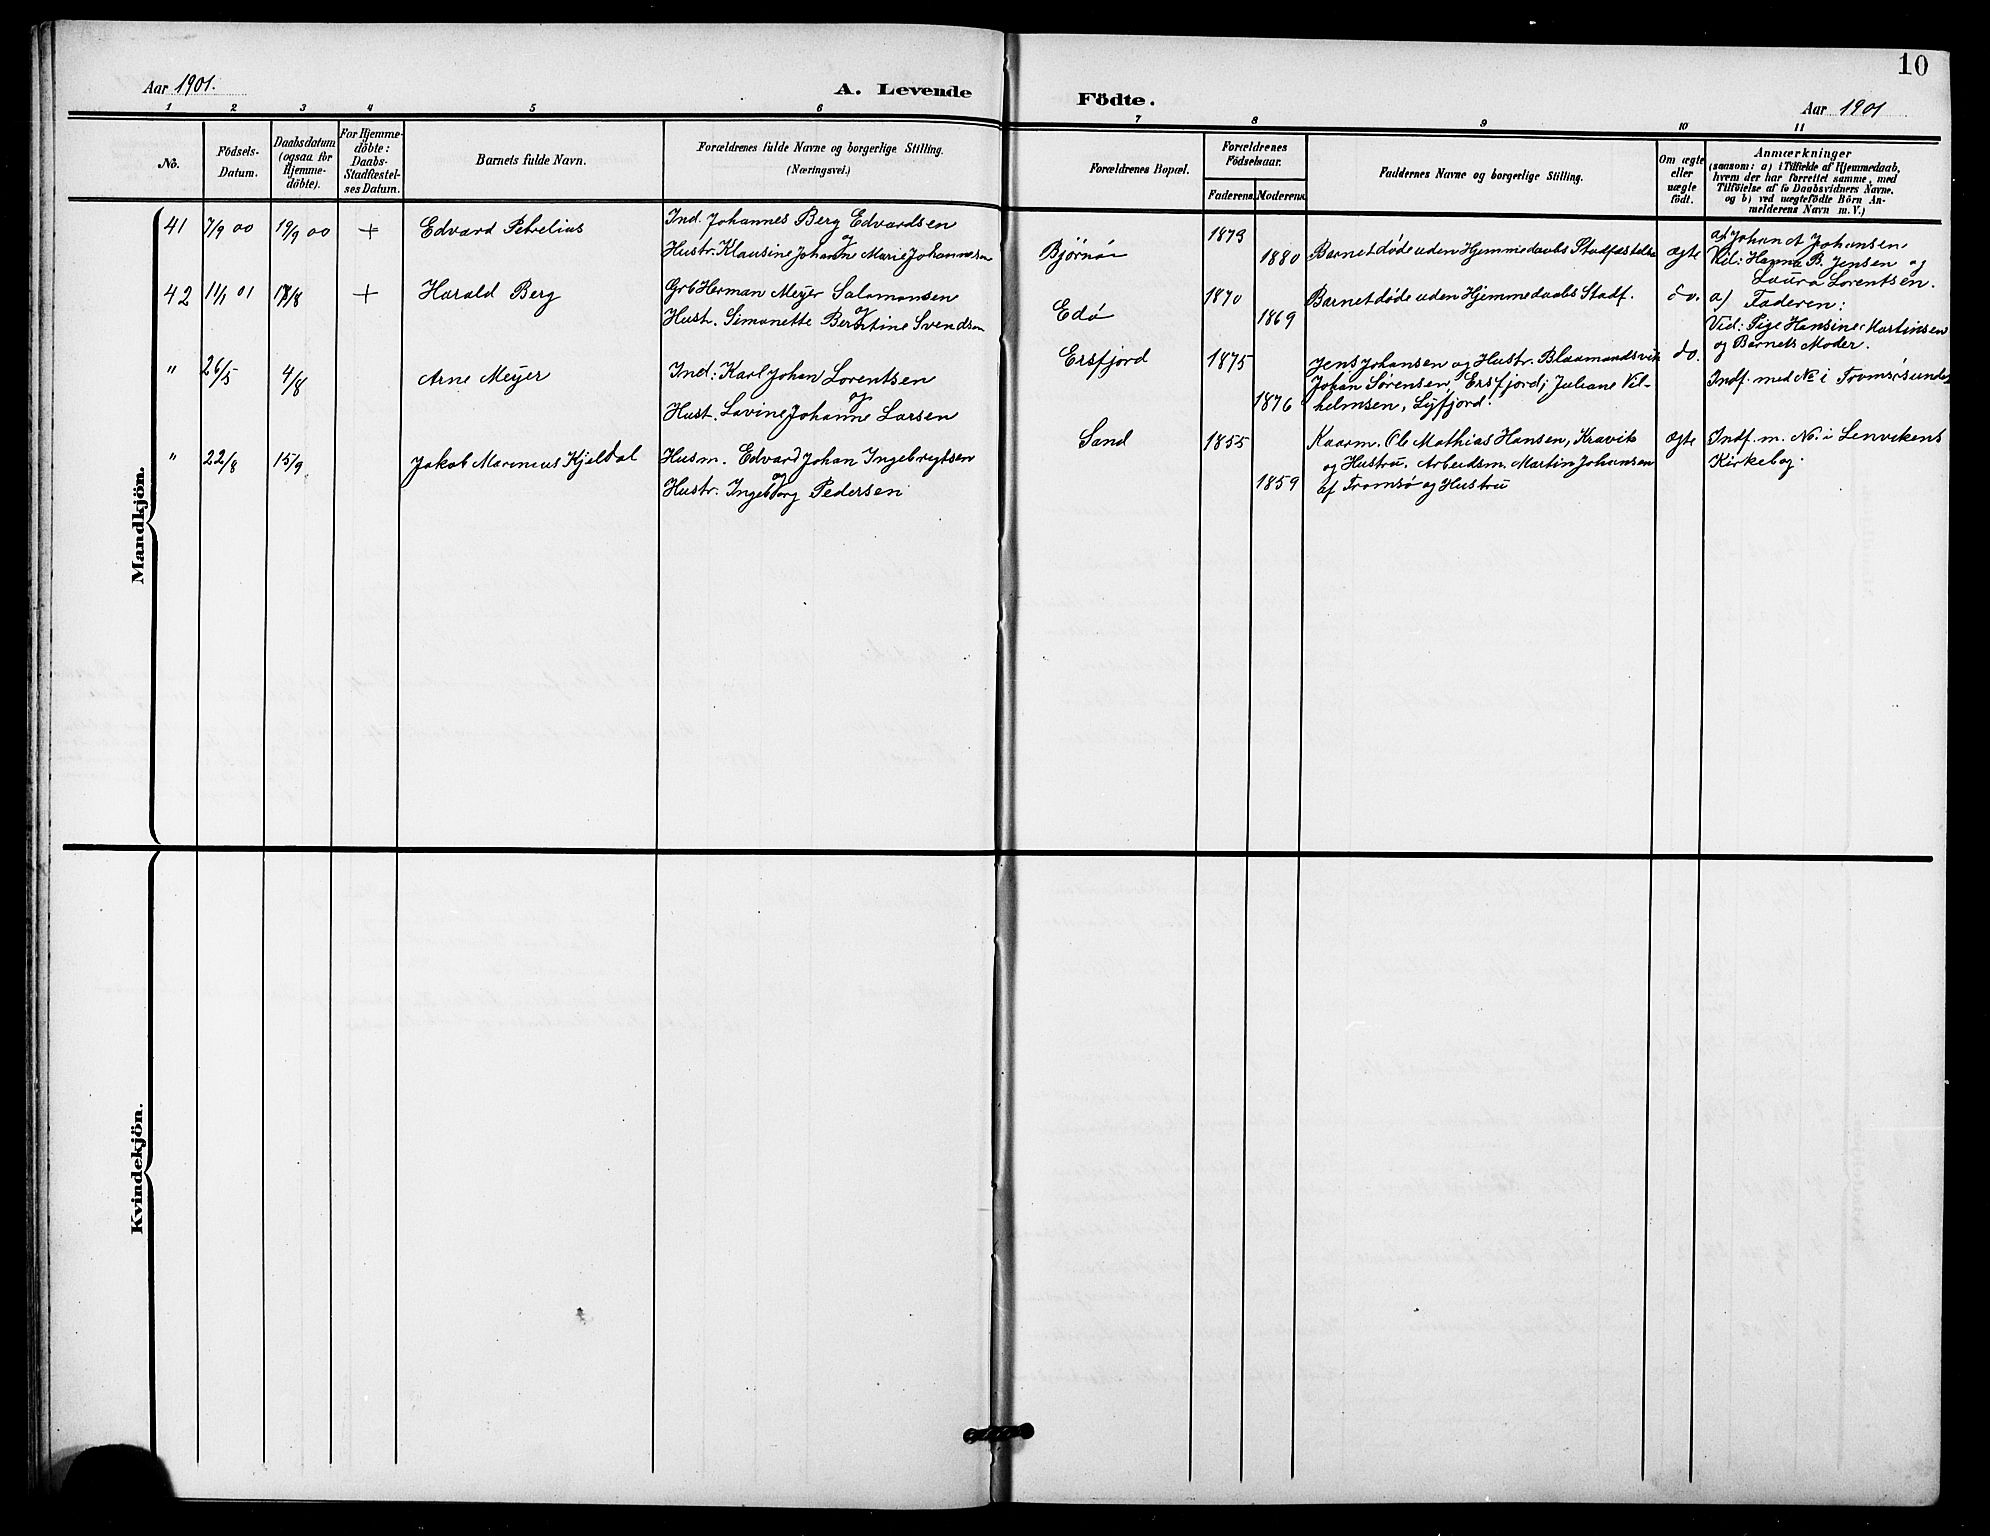 10
Aar 1901.
A. Levende Födte.
Aar 1901
1 2 3 4 5 6 7 8 9 10 11
No.
Födsels-
Datum.
Daabsdatum
(ogsaa for
Hjemme-
döbte).
For Hjemme-
döbte:
Daabs-
Stadfæstel-
ses Datum.
Barnets fulde Navn.
Forældrenes fulde Navne og borgerlige Stilling.
(Næringsvei.)
Forældrenes Bopæl.
Forældrenes
Födselsaar.
Faderens. Moderens.
Faddernes Navne og borgerlige Stilling.
Om ægte
eller
uægte
födt.
Anmærkninger
(saasom: a) i Tilfælde af Hjemmedaab,
hvem der har forrettet samme, med
Tilföielse af to Daabsvidners Navne.
og b) ved uægtefödte Börn An-
melderens Navn m. V.)
Mandkjön.
41 7/9 00 19/9 00 + Edvard Petrelius
Ind. Johannes Berg Edvardsen
og
Hustr. Klausine Johanne Marie Johannesen
Bjørnø
1879
1880
Barnet døde uden Hjemmedaabs Stadfæstelse
ægte
a) Johan A Johansen.
Vid: Hanna B. Jensen og
Laura Lorentsen.
42 11/1 01 /8 + Harald Berg
Grb Herman Meyer Salamonsen
og
Hust. Simonette Berntine Svendsen
Edø
1870
1869
Barnet døde uden Hjemmedaabs Stadf.
do.
a) Faderen:
Vid: Pige Hansine Martinsen
og Barnets Moder.
" 26/5 4/8 Arne Meyer
Ind: Karl Johan Lorentsen
og
Hust. Lavine Johanne Larsen
Ersfjord
1875
1876
Jens Johansen og Hustr. Blaamandsvik
Johan Sørensen, Ersfjord; Juliane Vil-
helmsen, Lyfjord.
do.
Indf. med No i Tromsøsundet
" 22/8 15/9 Jakob Marenius Kjeldal
Husm. Edvard Johan Ingebrigtsen
og
Hustr. Ingeborg Pedersen
Sand
1855
1859
Kaarm. Ole Mathias Hansen, Kravik
og Hustru. Arbeidsm. Martin Johansen
af Tromsø og Hustru
ægte
Indf. m. No. i Lenvikens
Kirkebog.
Kvindekjön.